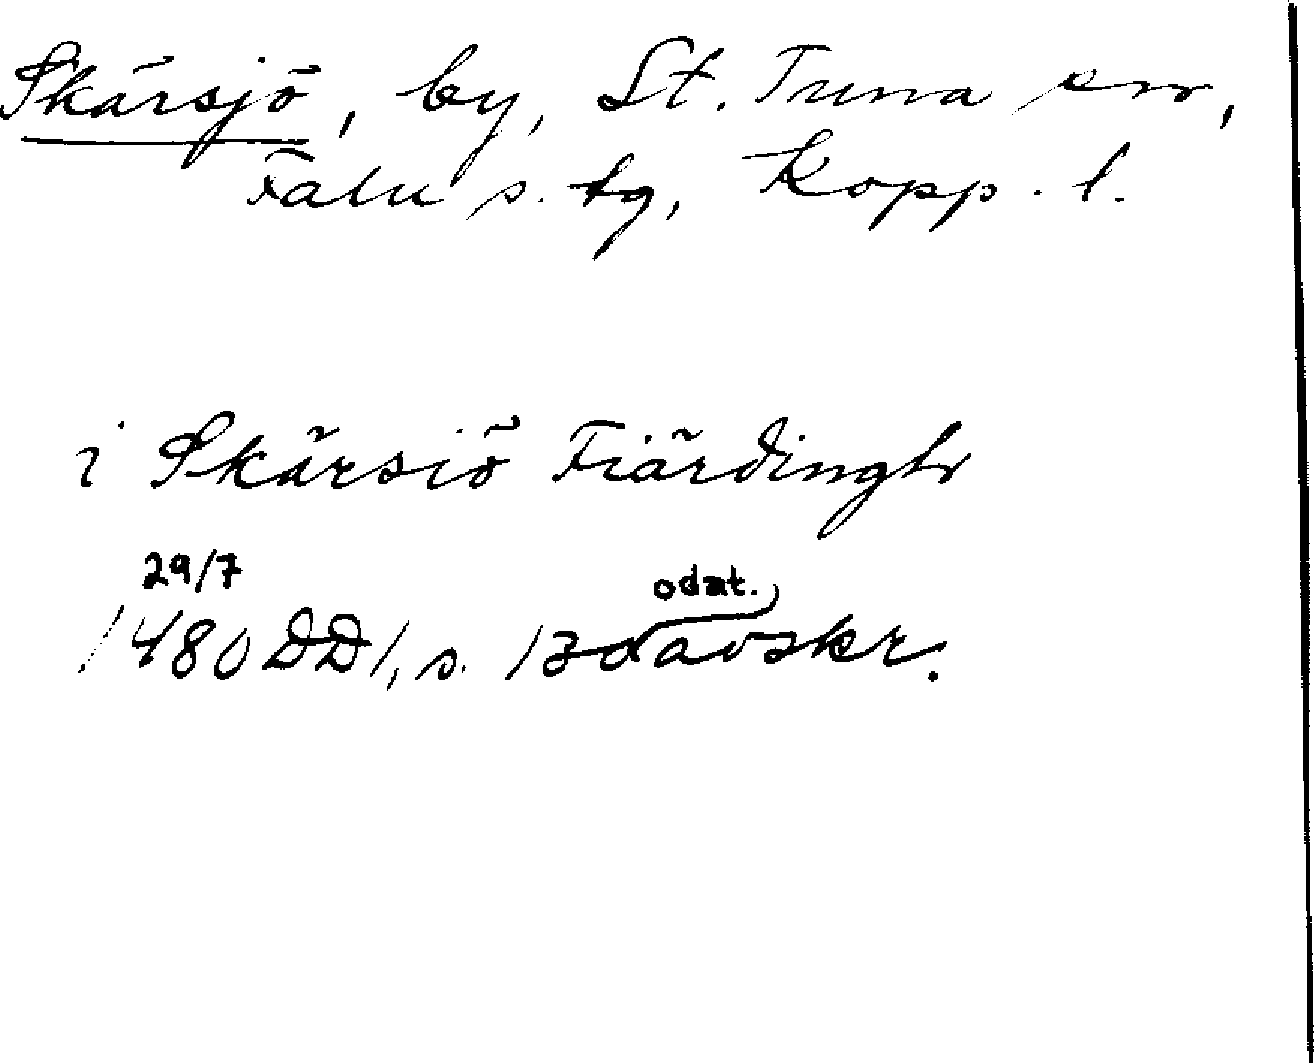 Skärsjö, by, St. Tuna sn,
Falu s. tg, Kopp. l.
i Skärsiö Fiärdingh
29/7
odat.
1480 DD 1, s. 130 avskr.